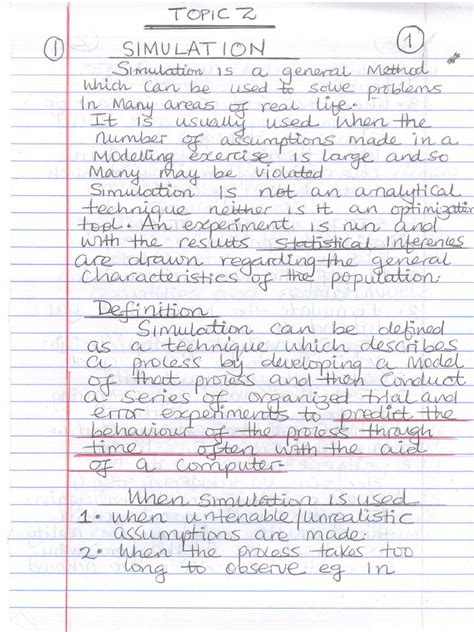 TOPIC 2
① SIMULATION ①
Simulation is a general Method
which can be used to solve problems
in Many areas of real life.
It is usually used when the
number of assumptions made in a
Modelling exercise is large and so
Many may be violated
Simulation is not an analytical
technique neither is it an optimization
tool. An experiment is run and
with the results statistical inferences
are drawn regarding the general
characteristics of the population.
Definition
Simulation can be defined
as a technique which describes
a process by developing a model
of that process and then conduct
a series of organized trial and
error experiments to predict the
behaviour of the process through
time often with the aid
of a computer.
When simulation is used
1. when untenable/unrealistic
assumptions are made.
2. When the process takes too
long to observe eg in